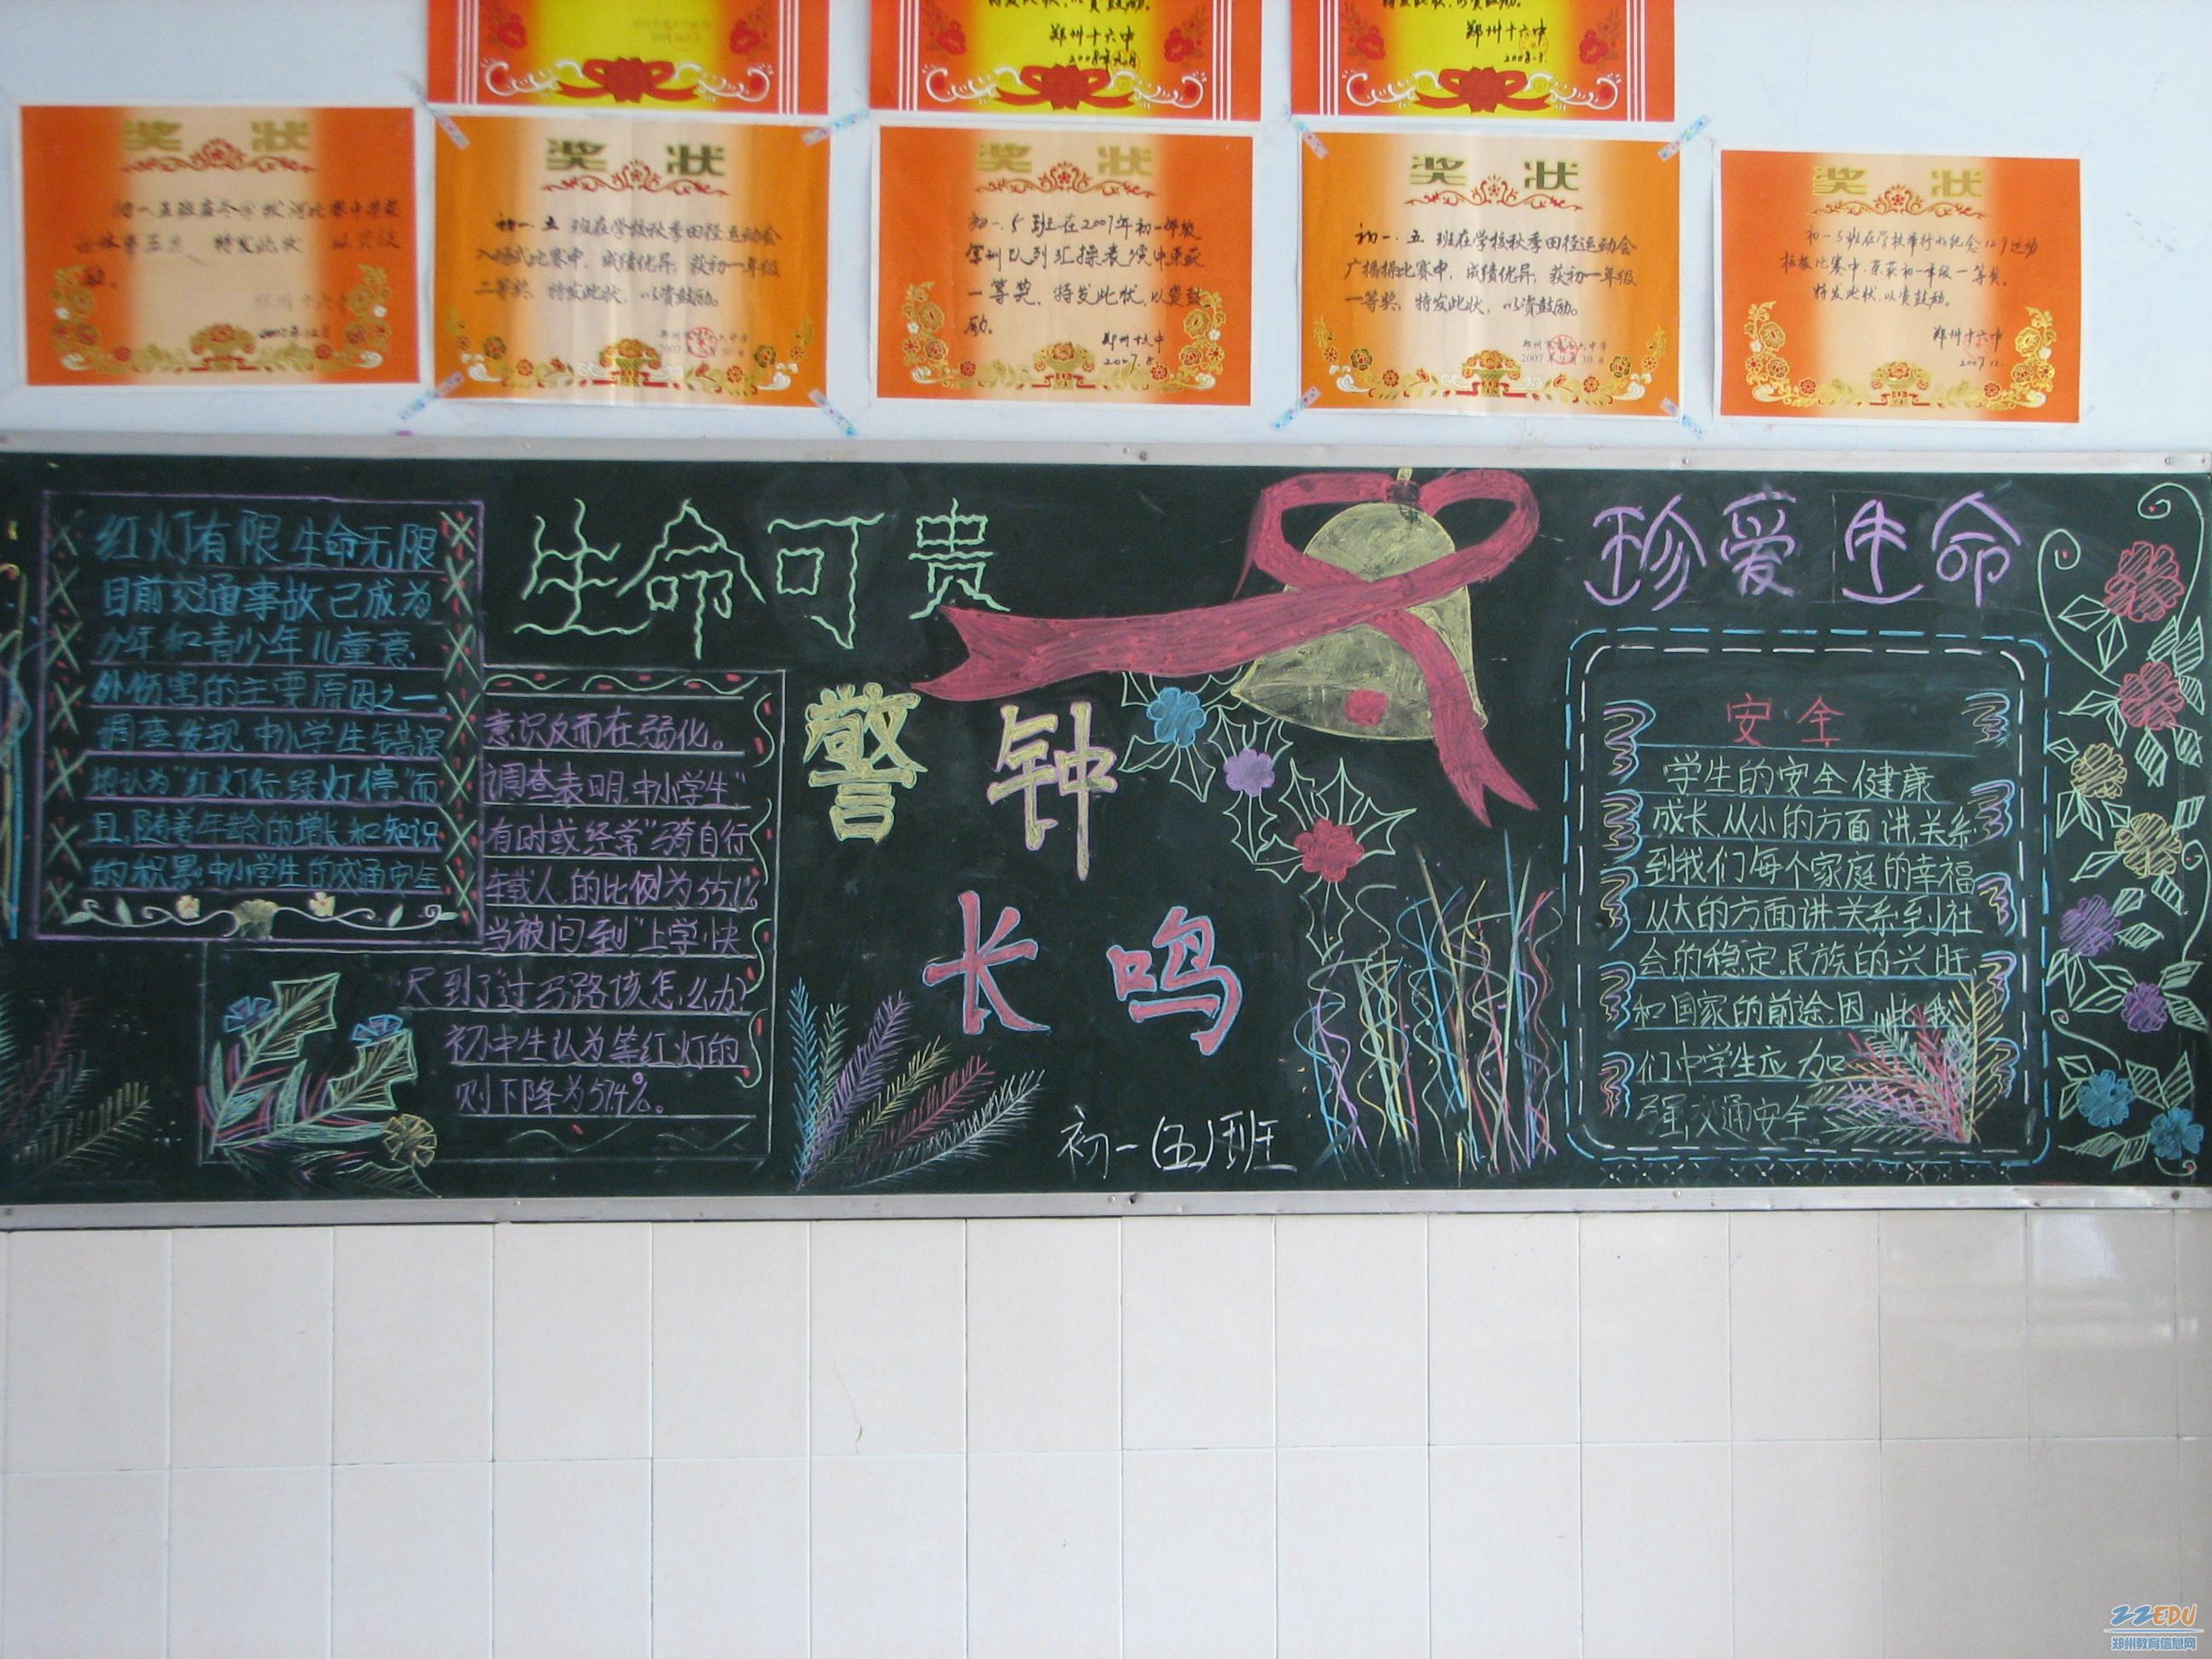 郑州十六中
2008年元月
郑州十六中
2008.1.
奖状
特发此状 以资鼓励。
郑州十六中
2007年12月
奖状
初一.五班在学校秋季田径运动会
入场式比赛中，成绩优异，获初一年级
二等奖，特发此状，以资鼓励。
2007年9月30日
奖状
初一.5班在2007年初一年级
军训队列汇操表演中荣获
一等奖，特发此状，以资鼓
励。
郑州十六中
2007.8.
奖状
初一.五班在学校秋季田径运动会
广播操比赛中，成绩优异，获初一年级
一等奖，特发此状，以资鼓励。
2007年9月30日
奖状
初一5班在学校举行的纪念12.9运动
比赛中，荣获初一年级一等奖，
特发此状，以资鼓励。
郑州十六中
2007.12.
红灯有限生命无限
目前交通事故已成为
少年和青少年儿童意
外伤害的主要原因之一。
调查发现，中小学生错误
地认为“红灯行，绿灯停”而
且，随着年龄的增长和知识
的积累，中小学生的交通安全
生命可贵
意识反而在弱化。
调查表明，中小学生“
有时或经常”骑自行
车载人的比例为55.1%
当被问到“上学快
尺到了过马路该怎么办？
初中生认为等红灯的
则下降为57.4%。
警钟
长鸣
初一(五)班
珍爱生命
安全
学生的安全健康
成长，从小的方面讲，关系
到我们每个家庭的幸福
从大的方面讲关系到社
会的稳定，民族的兴旺
和国家的前途，因此我
们中学生应加
强交通安全。
ZZEDU
郑州教育信息网